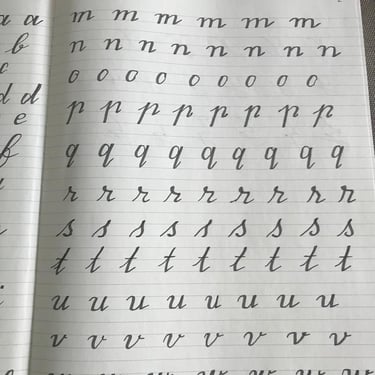 a a
b
c
d d
e
f
m m m m m m
n n n n n n n n
o o o o o o o o o
p p p p p p p p
q q q q q q q q q
r r r r r r r r r
s s s s s s s s s
t t t t t t t t t
u u u u u u u u
v v v v v v v v